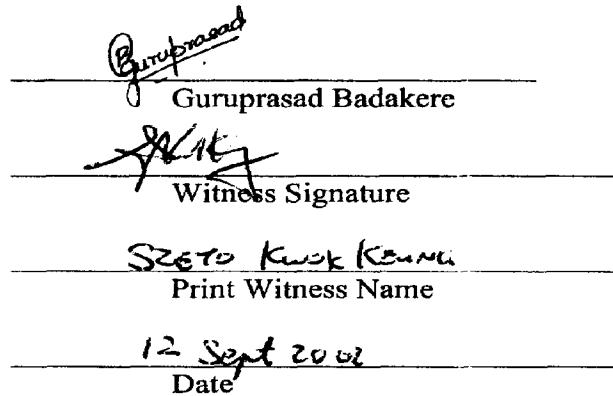 Guruprasad
Guruprasad Badakere
Witness Signature
SZETO KWOK KEUNG
Print Witness Name
12 Sept 2002
Date